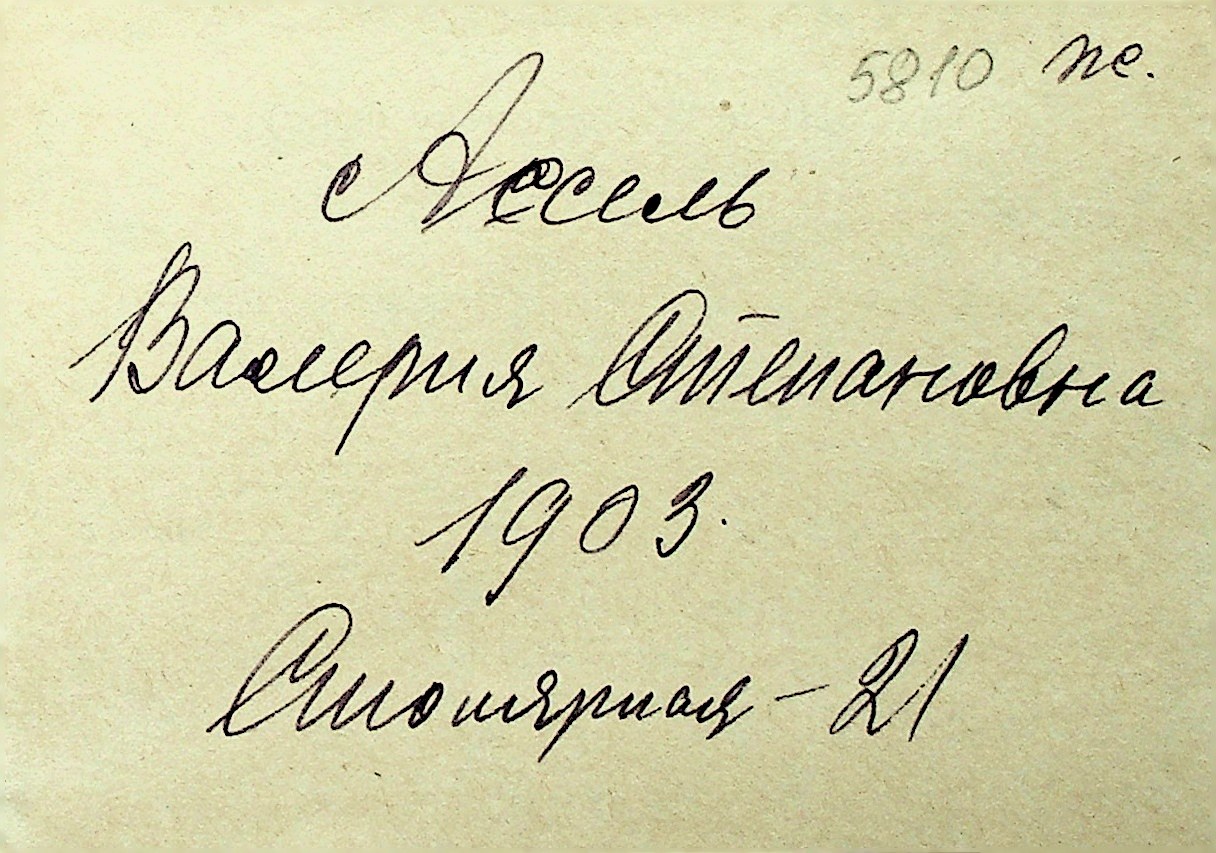 5810 ж.
Ассель
Валерия Степановна
1903.
Столярная - 21